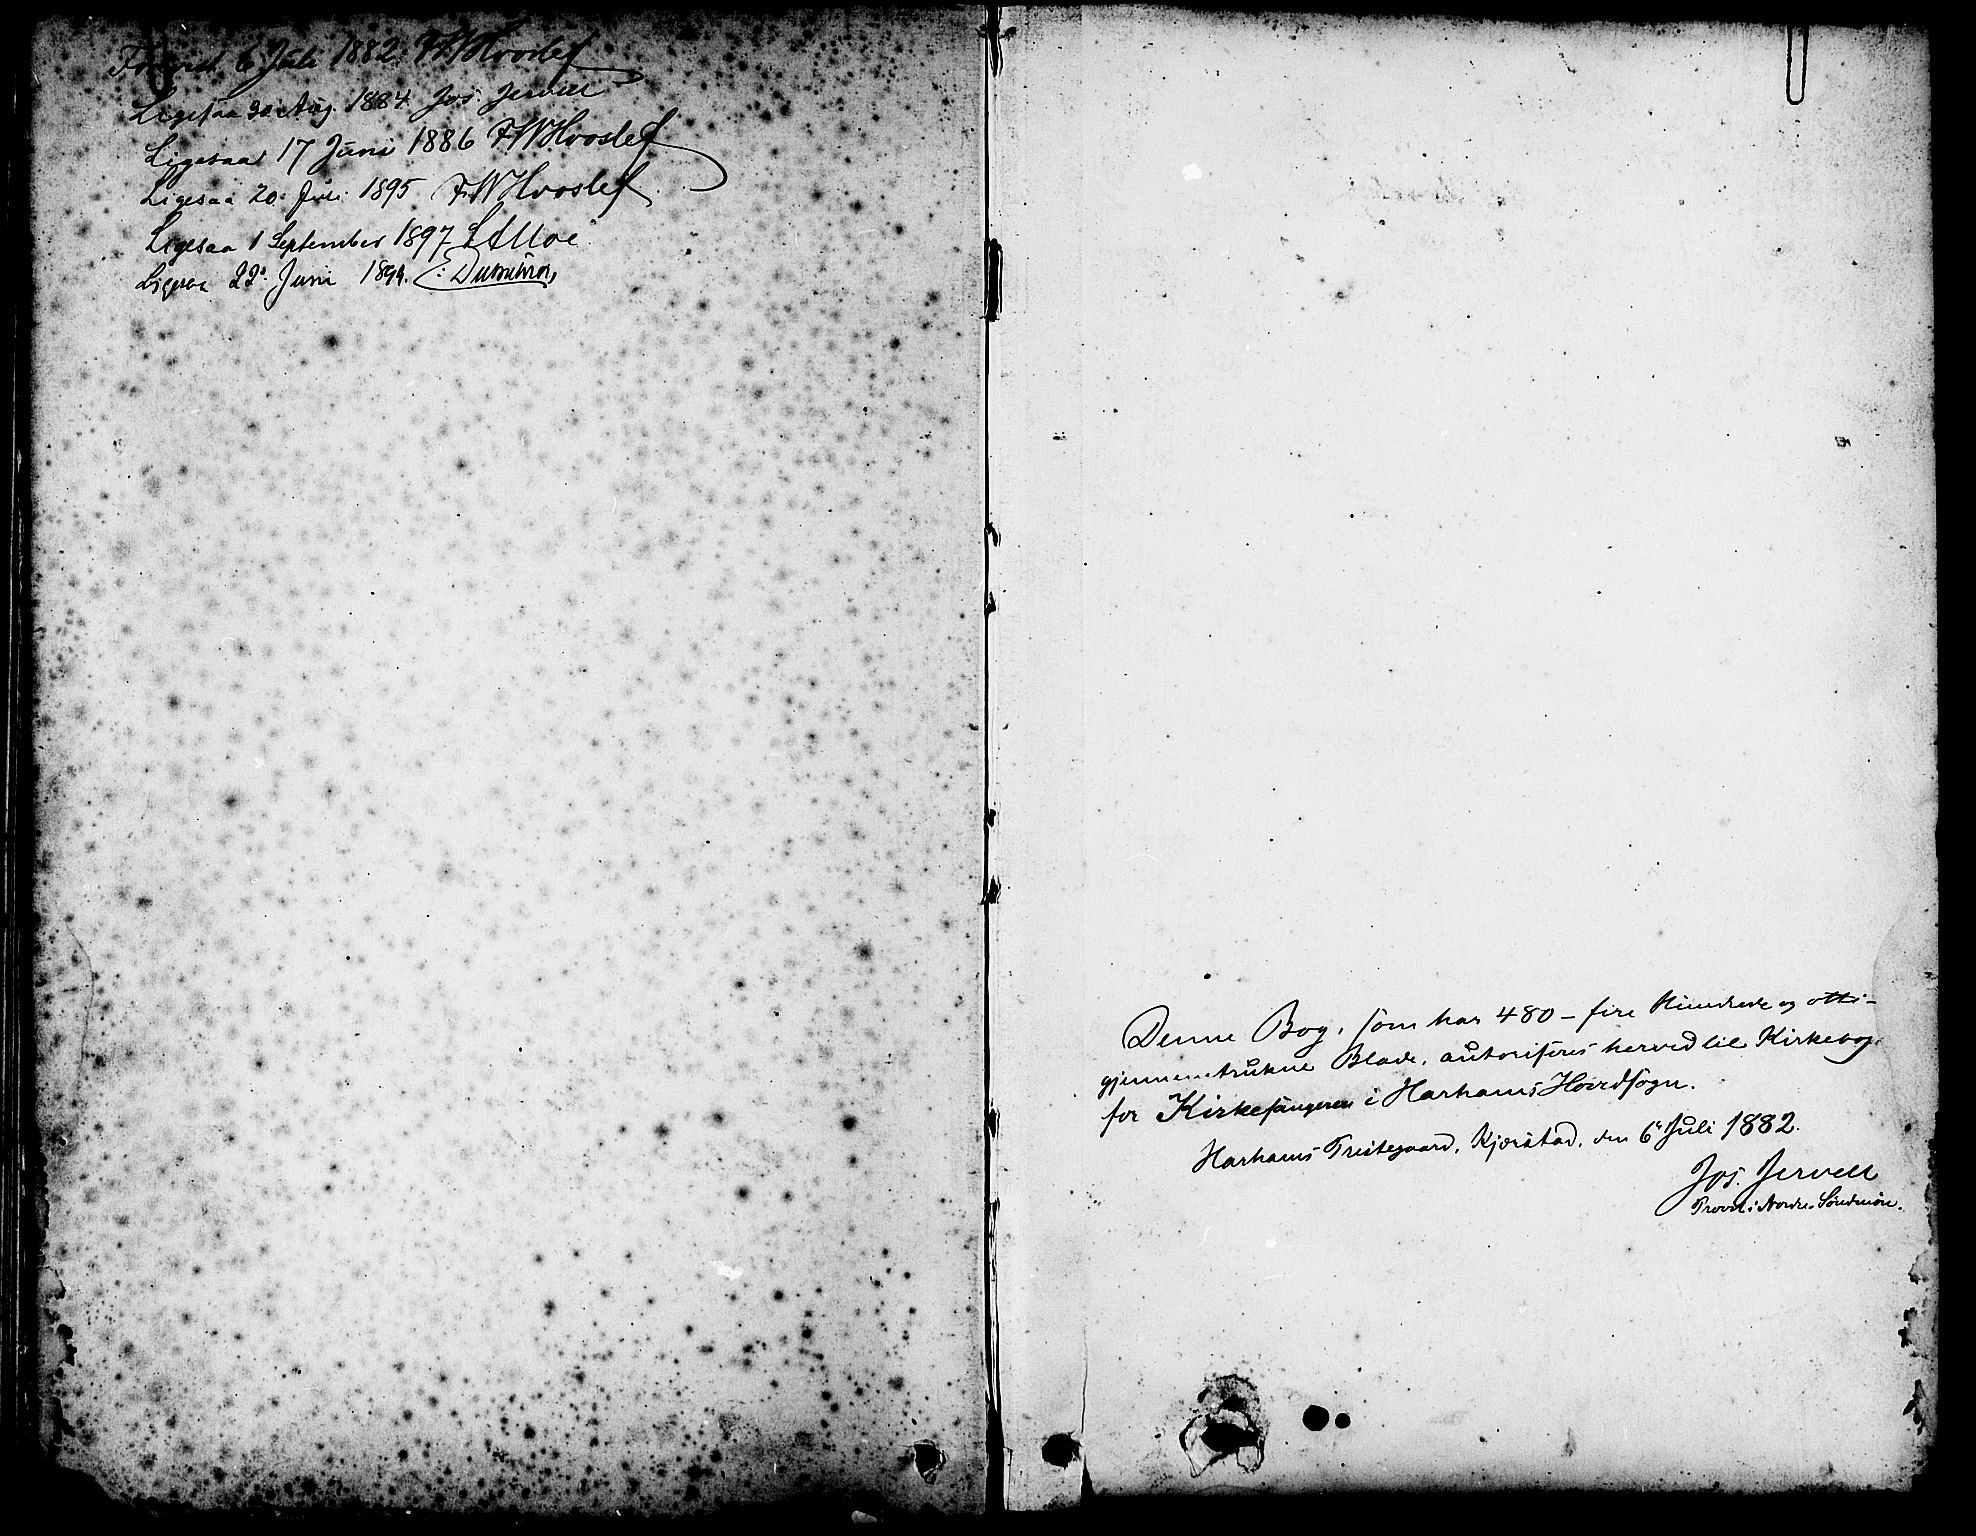 Forevist 6 Juli 1882. FWHvoslef
Ligesaa 30 Aug. 1884. Jos. Jervell
Ligesaa 17 Juni 1886 FWHvoslef
Ligesaa 20. Juli 1895 FWHvoslef
Ligesaa 1 September 1897
Ligesaa 22de Juni 1899.
Denne Bog, som har 480 - fire Hundrede og otti-
gjennemtrukne Blade, autoriseres herved til Kirkebog
for Kirkesangeren i Harhams Hovedsogn.
Harhams Prestegaard, Kjerstad, den 6te Juli 1882.
Jos. Jervell
Provst i Nordre Søndmøre.